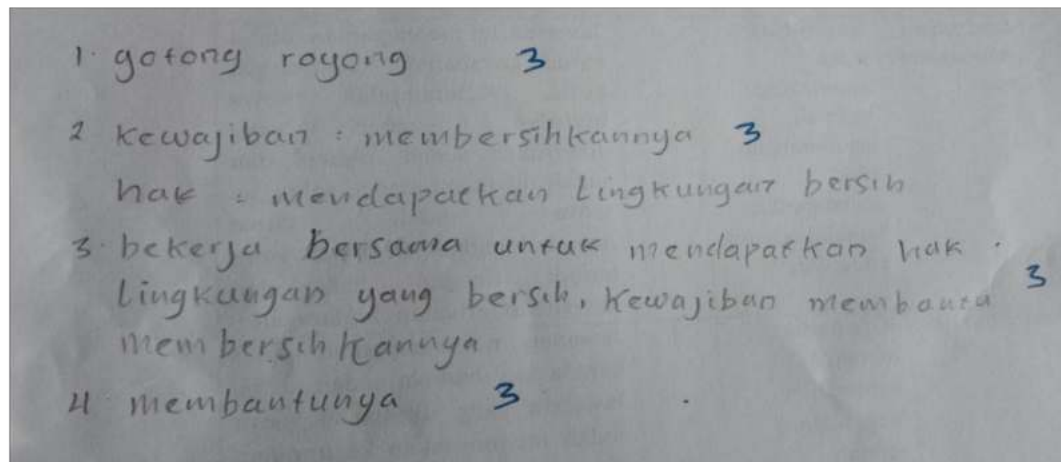 1. gotong royong 3
2 kewajiban : membersihkannya 3
hak : mendapatkan Lingkungan bersih
3. bekerja bersama untuk mendapatkan hak .
Lingkungan yang bersih, kewajiban membantu 3
membersihkannya
4 membantunya 3